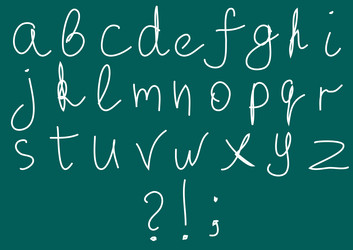 a b c d e f g h i
j k l m n o p q r
s t u v w x y z
? ! ;